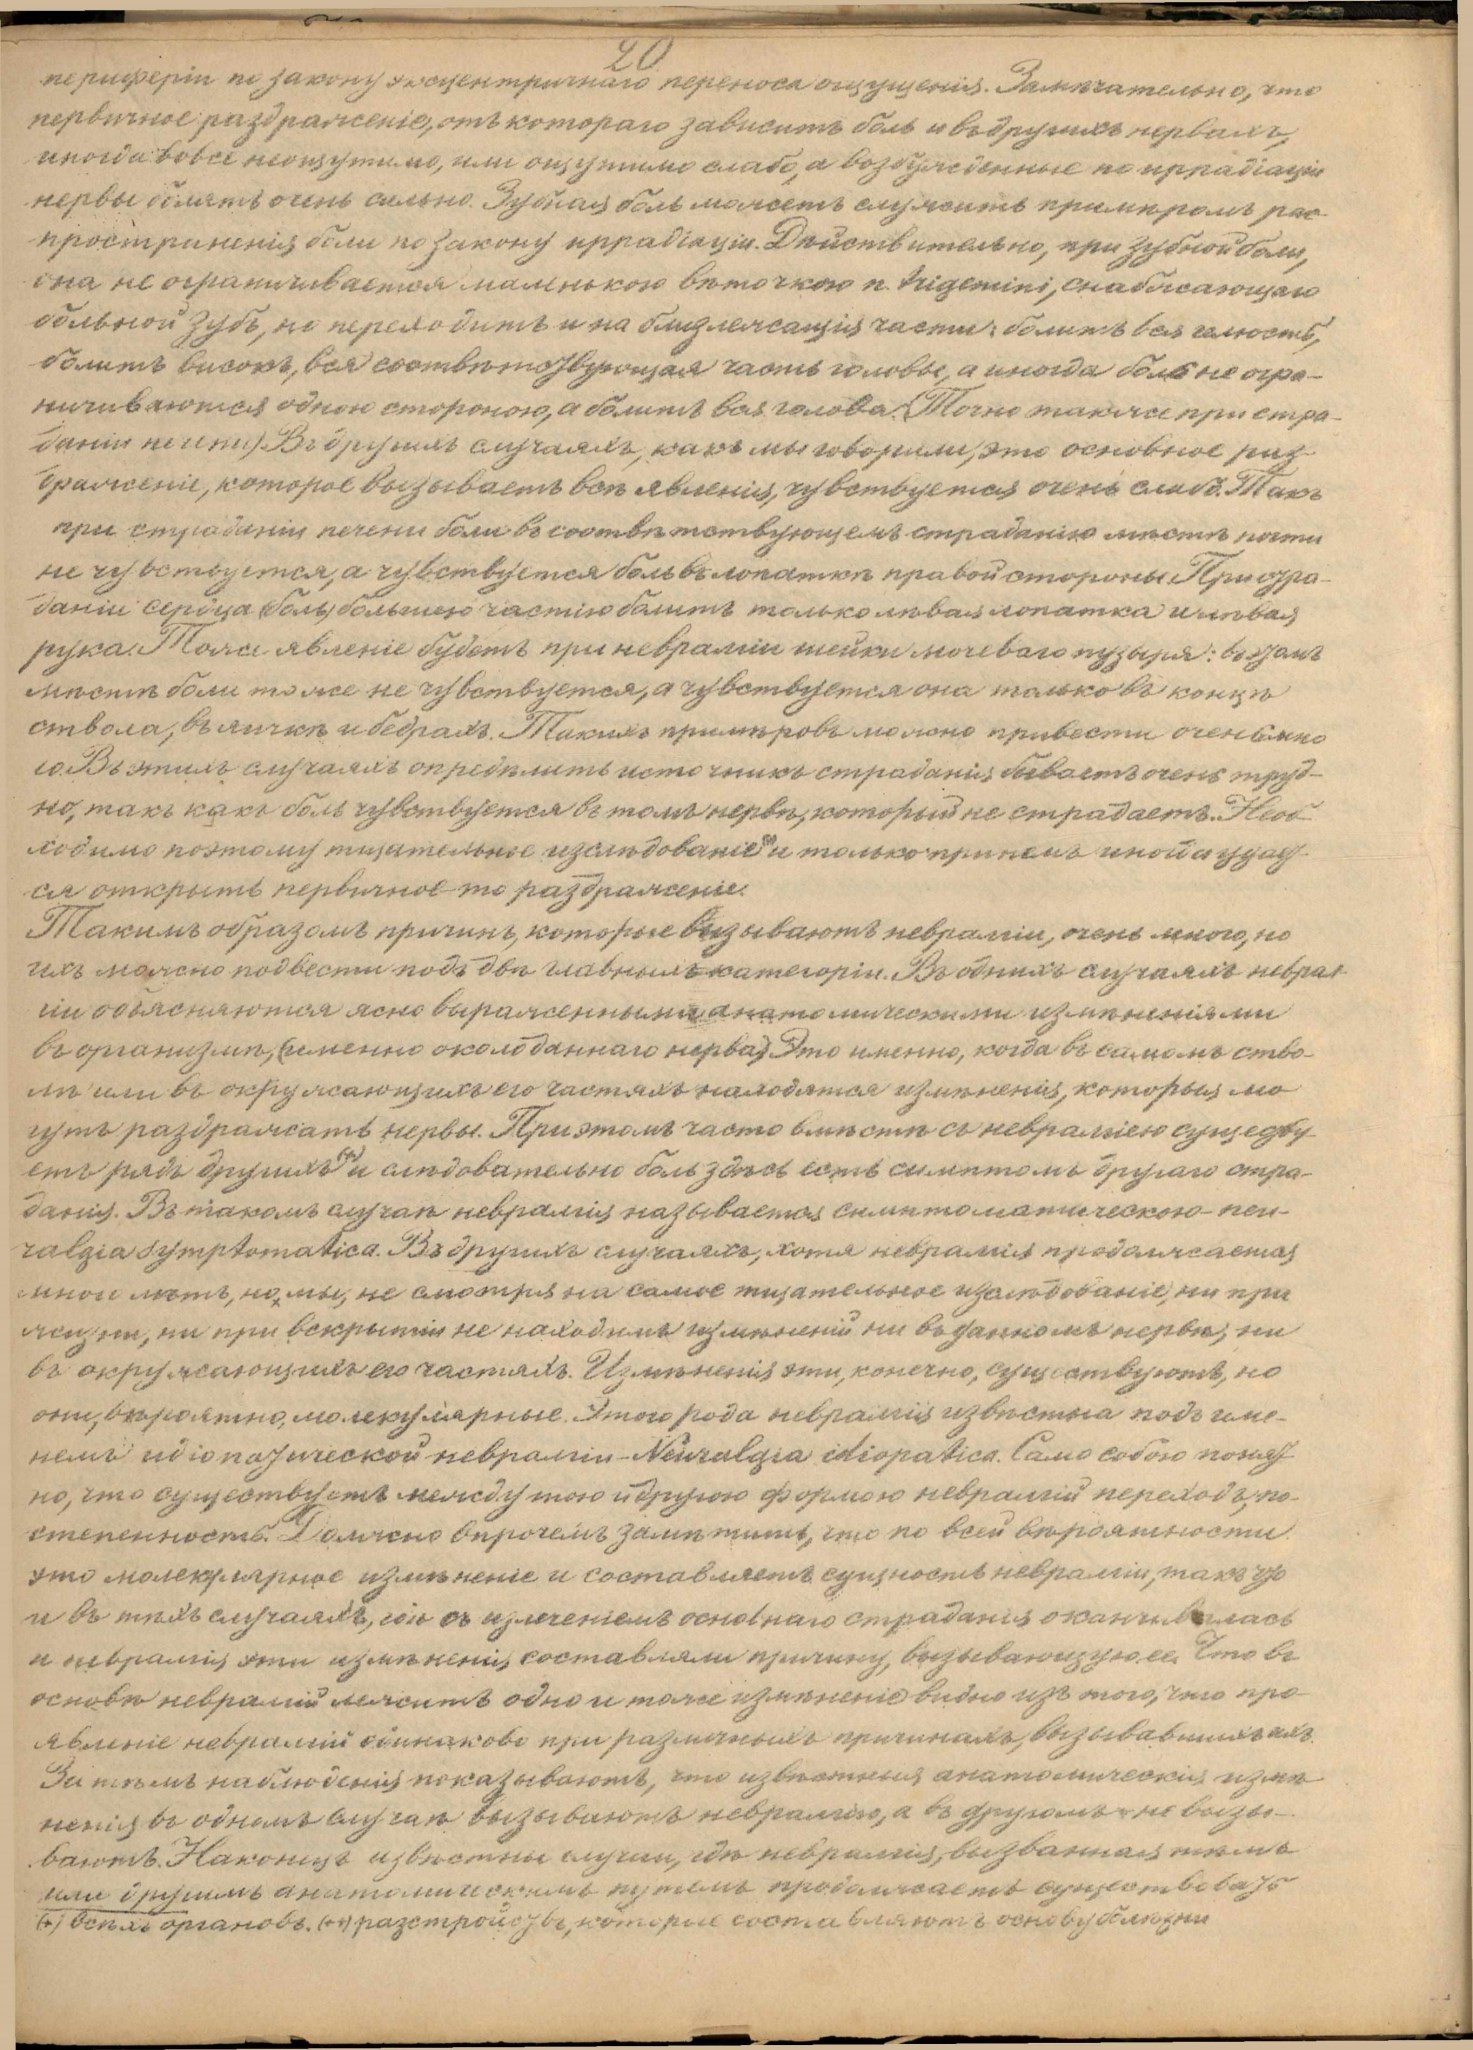 20
периферіи по закону эксцентричнаго переноса ощущенія. Замѣчательно, что
первичное раздраженіе, отъ котораго зависитъ боль и въ другихъ нервахъ,
иногда вовсе неощутимо, или ощутимо слабо, а возбужденные по иррадіаціи
нервы болятъ очень сильно. Зубная боль можетъ служить примѣромъ рас-
пространенія боли по закону иррадіаціи. Дѣйствительно, при зубной боли,
она не ограничивается маленькою вѣточкою n. trigemini, снабжающаго
больной зубъ, но переходитъ и на близлежащія части: болитъ вся челюсть,
болитъ високъ, вся соотвѣтствующая часть головы, а иногда боль не огра-
ничиваются одною стороною, а болитъ вся голова. (Точно также при стра-
даніи печени) Въ другихъ случаяхъ, какъ мы говорили, это основное раз-
драженіе, которое вызываетъ всѣ явленія, чувствуется очень слабо. Такъ
при страданіи печени боли въ соотвѣтствующемъ страданію мѣстѣ почти
не чувствуется, а чувствуется боль въ лопаткѣ правой стороны. При стра-
даніи сердца (боль) большею частію болитъ только лѣвая лопатка и лѣвая
рука. Тоже явленіе будетъ при невралгіи шейки мочеваго пузыря: въ этомъ
мѣстѣ боли тоже не чувствуется, а чувствуется она только въ концѣ
ствола, въ яичкѣ и бедрахъ. Такихъ примѣровъ можно привести очень мно
го. Въ этихъ случаяхъ опредѣлить источникъ страданія бываетъ очень труд-
но, такъ какъ боль чувствуется въ томъ нервѣ, который не страдаетъ. Необ-
ходимо поэтому тщательное изслѣдованіе (+) и только при немъ иной а удает-
ся открыть первичное то раздраженіе.
Такимъ образомъ причинъ, которые вызываютъ невралгіи, очень много, но
ихъ можно подвести подъ двѣ главныхъ категоріи. Въ однихъ случаяхъ неврал
гіи объясняются ясно выраженными анатомическими измѣненіями
въ организмѣ, (именно около даннаго нерва). Это именно, когда въ самомъ ство-
лѣ или въ окружающихъ его частяхъ находятся измѣненія, которыя мо
гутъ раздражать нервы. При этомъ часто вмѣстѣ съ невралгіею существу-
етъ рядъ другихъ (++) и слѣдовательно боль здѣсь есть симптомъ другаго стра-
данія. Въ такомъ случаѣ невралгія называется симптоматическою - neu-
ralgia symptomatica. Въ другихъ случаяхъ, хотя невралгія продолжается
много лѣтъ, но мы, не смотря на самое тщательное изслѣдованіе, ни при
жизни, ни при вскрытіи не находимъ измѣненій ни въ данномъ нервѣ, ни
въ окружающихъ его частяхъ. Измѣненія эти, конечно, существуютъ, но
они, вѣроятно, молекулярные. Этого рода невралгія извѣстна подъ име-
немъ идіопатической невралгіи - Neuralgia idiopatica. Само собою понят-
но, что существуетъ между тою и другою формою невралгій переходъ, по-
степенность. Должно впрочемъ замѣтить, что по всей вѣроятности
это молекулярное измѣненіе и составляетъ сущность невралгіи, такъ что
и въ тѣхъ случаяхъ, гдѣ съ излеченіемъ основнаго страданія оканчивалась
и невралгія эти измѣненія составляли причину, вызывающую ее. Что въ
основѣ невралгій лежитъ одно и тоже измѣненіе видно изъ того, что про-
явленіе невралгій одинаково при различныхъ причинахъ, вызывавшихъ ихъ.
Затѣмъ наблюденія показываютъ, что извѣстныя анатомическія измѣ
ненія въ одномъ случаѣ вызываютъ невралгію, а въ другомъ - не вызы-
ваютъ. Наконецъ извѣстны случаи, гдѣ невралгія, вызванная тѣмъ
или другимъ анатомическимъ путемъ продолжаетъ существовать
(+) всѣхъ органовъ. (++) разстройствъ, которые составляютъ основу болѣзни